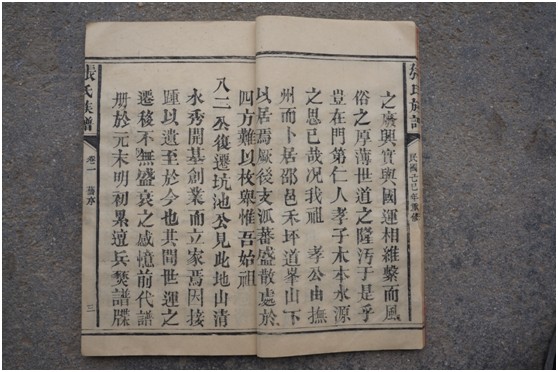 張氏族譜
民國乙巳年重修
之廢興實與國運相維繫而風
俗之厚薄世道之隆汚于是乎
豈在門第仁人孝子木本水源
之思已哉况我祖 孝公由撫
州而卜居邵邑禾坪道峯山下
以居焉厥後支派蕃盛散處於
四方難以枚舉惟吾始祖
八二公復遷坑池公見此地山清
水秀開基創業而立家焉因接
踵以遺至於今也其間世運之
遷移不無盛衰之感憶前代譜
册於元末明初累遭兵燹譜牒
張氏族譜
卷一
舊序
三